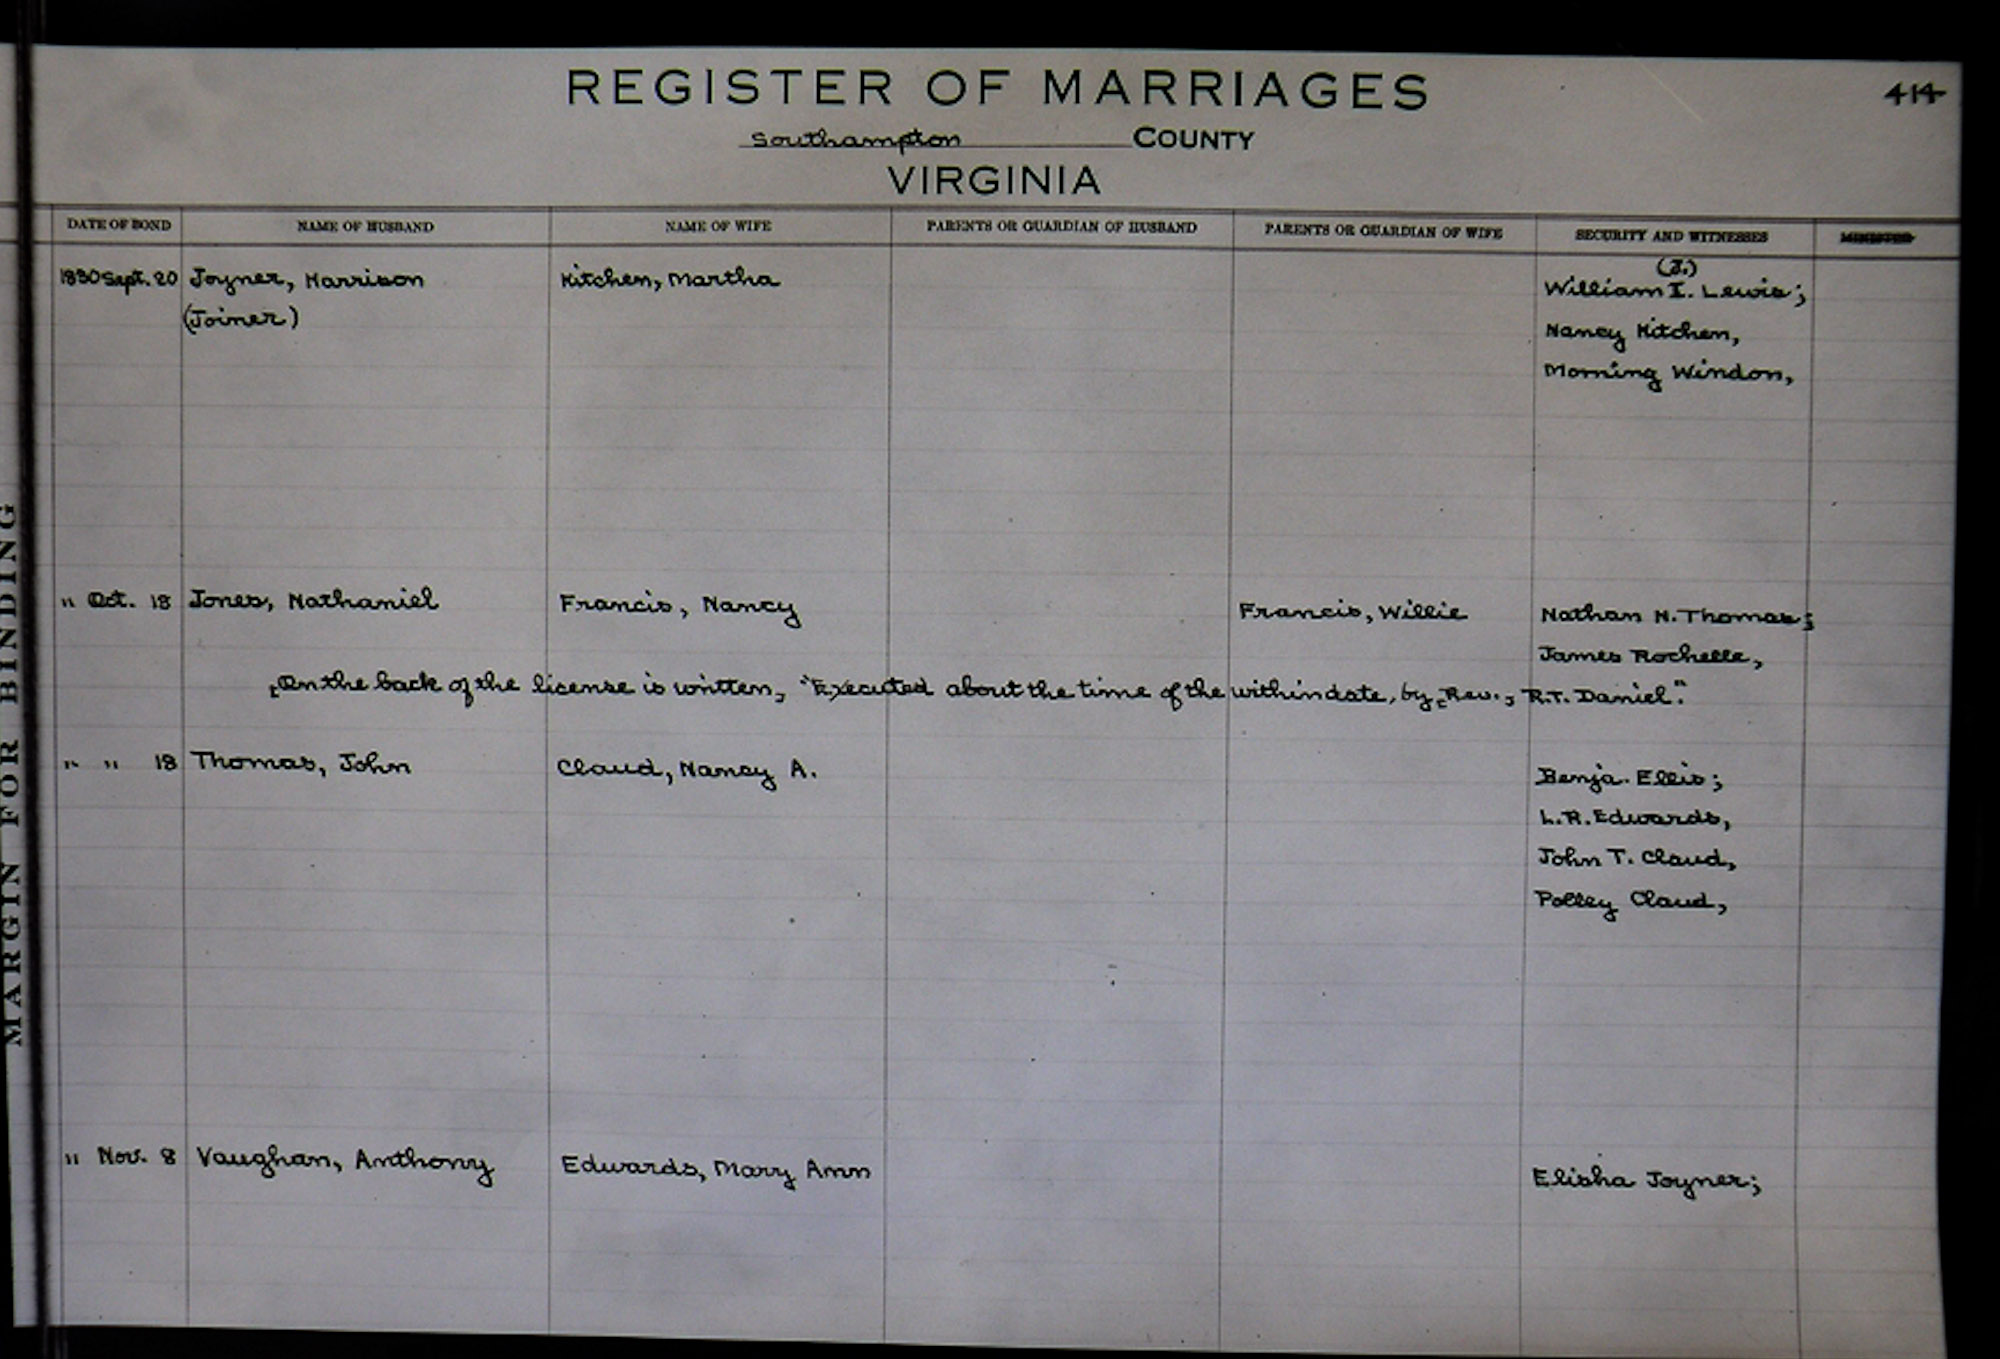 REGISTER OF MARRIAGES
414
Southampton COUNTY
VIRGINIA
DATE OF BOND NAME OF HUSBAND NAME OF WIFE PARENTS OR GUARDIAN OF HUSBAND PARENTS OR GUARDIAN OF WIFE SECURITY AND WITNESSES MINISTER
(J.)
1830 Sept. 20 Joyner, Harrison Kitchen, Martha William I. Lewis;
(Joiner) Nancy Kitchen,
Morning Windon,
" Oct. 18 Jones, Nathaniel Francis, Nancy Francis, Willie Nathan N. Thomas;
James Rochelle,
[On the back of the license is written, "Executed about the time of the within date, by [Rev.] R.T. Daniel".
" " 18 Thomas, John Claud, Nancy A. Benja. Ellis;
L.R. Edwards,
John T. Claud,
Polley Claud,
" Nov. 8 Vaughan, Anthony Edwards, Mary Ann Elisha Joyner;
MARGIN FOR BINDING